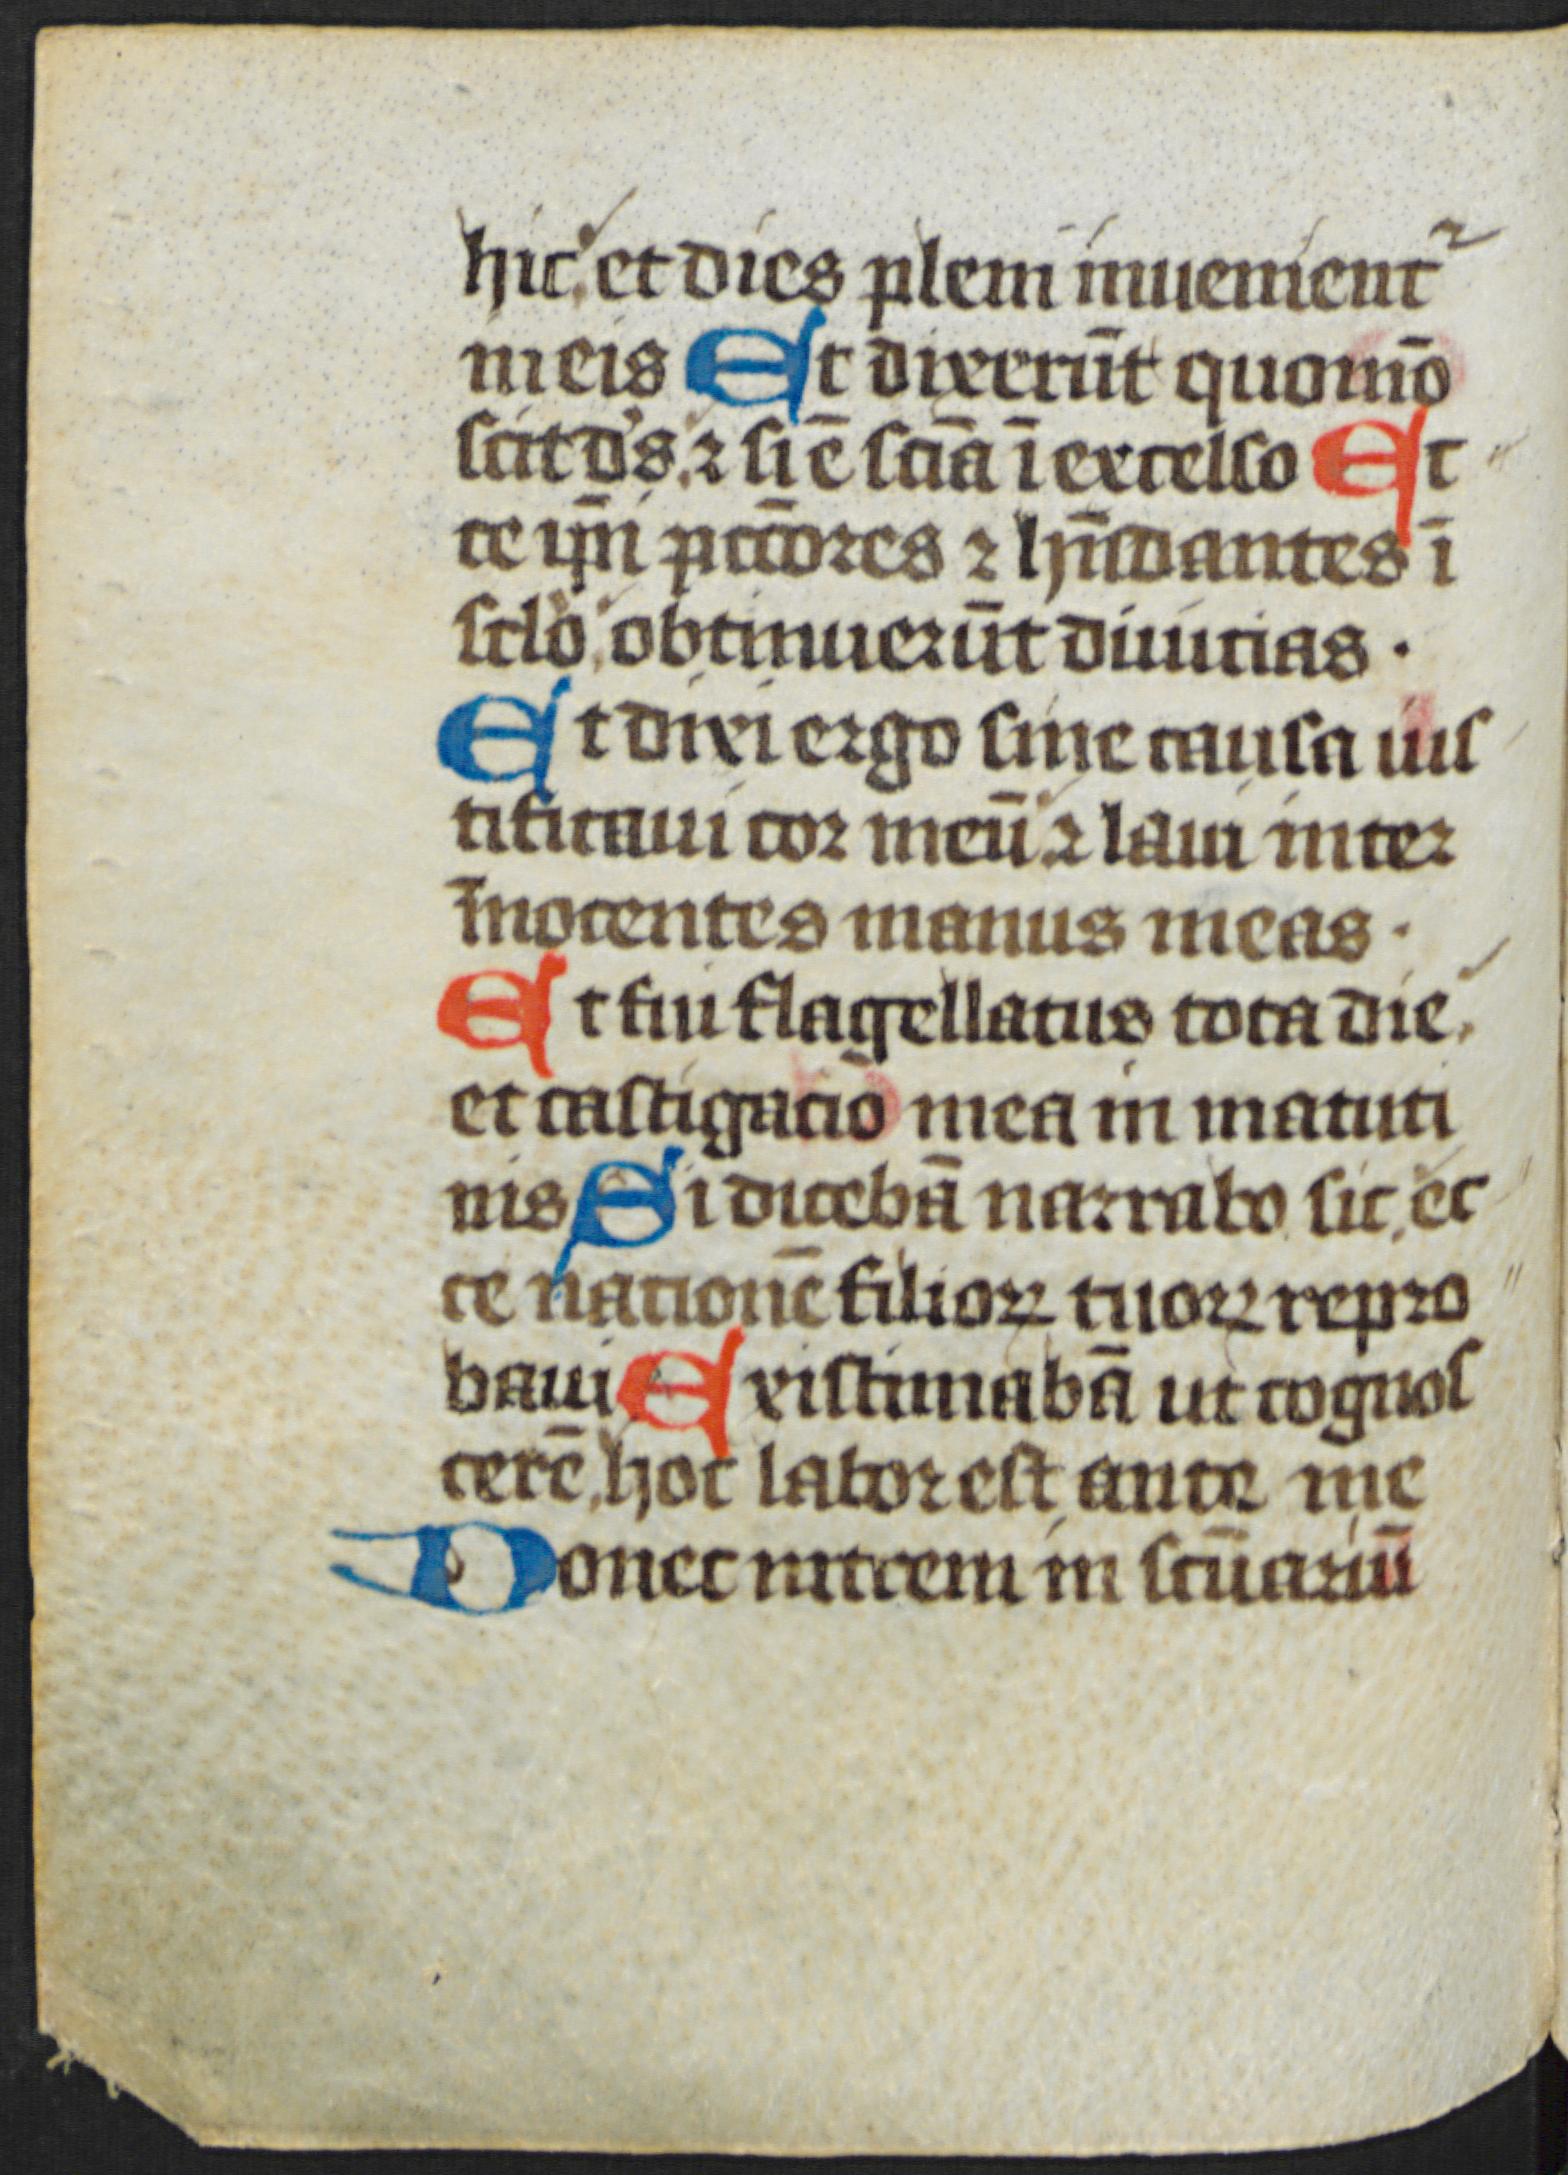 hic, et dies pleni inuenient᷑
in eis Et dixerūt quomō
scit d's, ⁊ si ē scīa ī excelso Et
ce ip̄i pctōres ⁊ hn̄dantes ī
sclo, obtinuerūt diuitias ·
Et dixi ergo sine causa ius
tificaui cor meū, ⁊ laui inter
īnocentes manus meas ·
Et fui flagellatus tota die,
et castigatiō mea in matuti
nis Si dicebā narrabo sic, ec
ce nationē filioꝝ tuoꝝ repro
baui Existimabā ut cognos
cerē, hoc labor est ante me
Donec intrem in scūariū